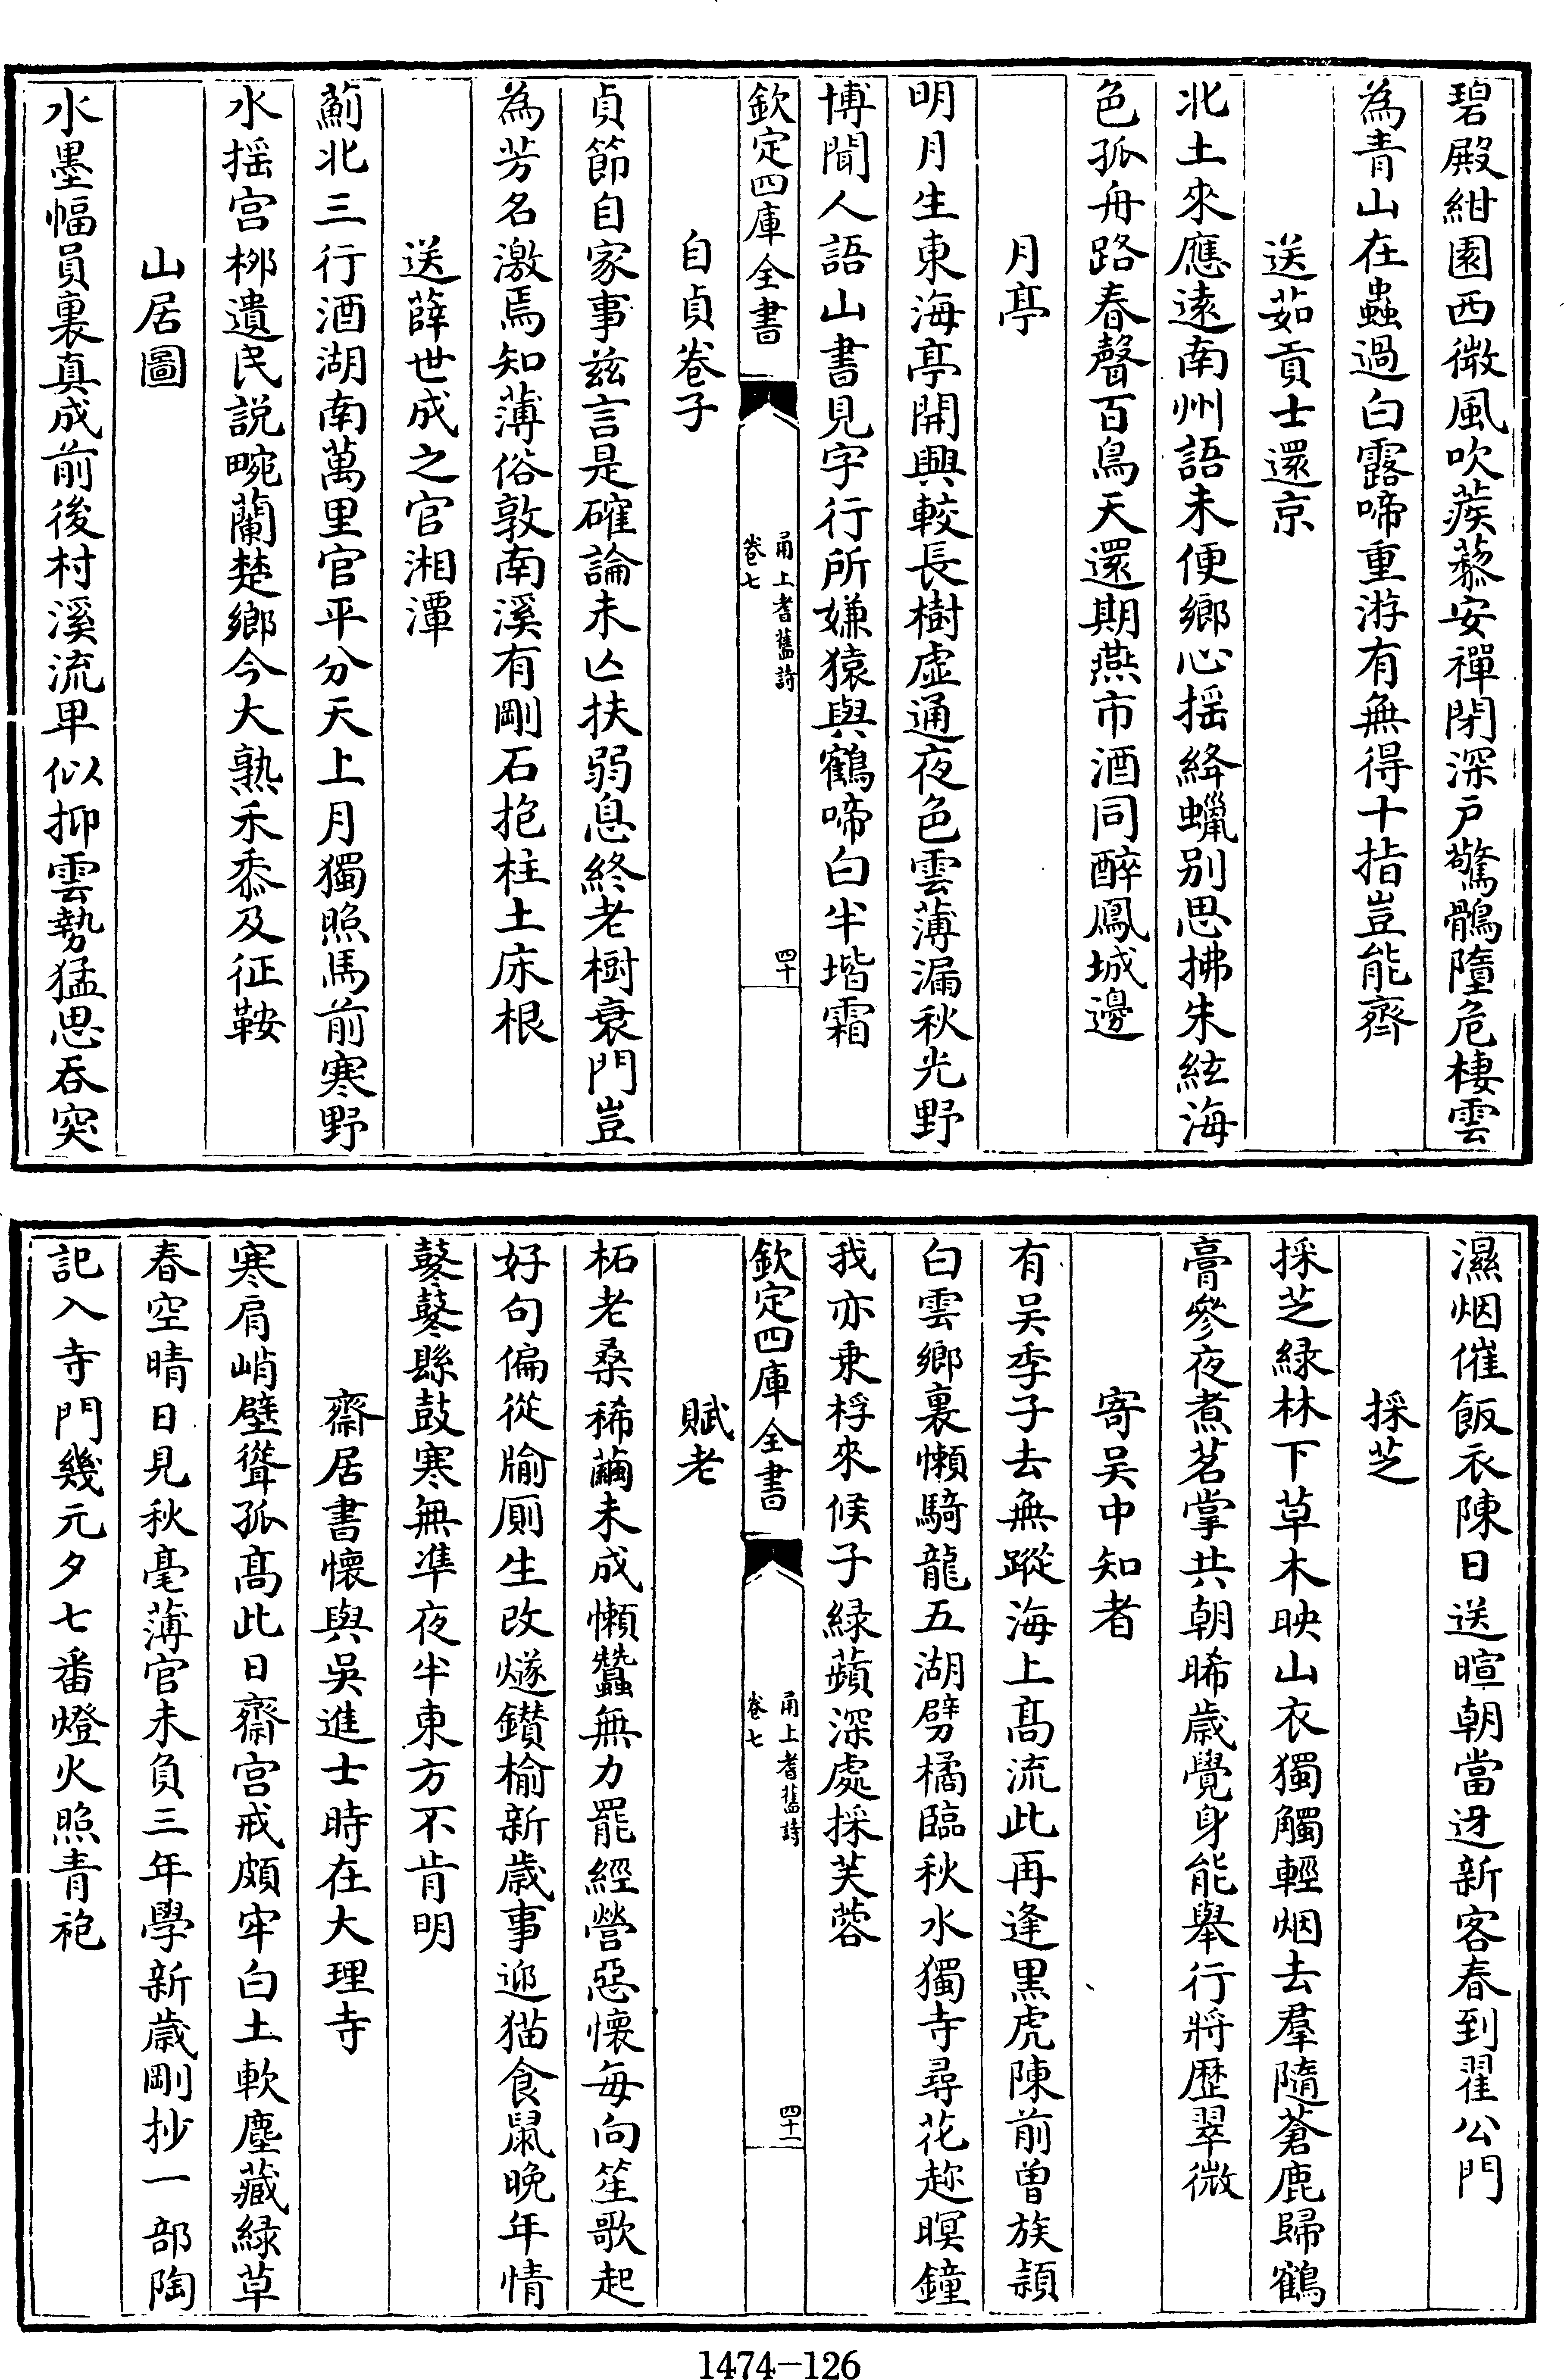 碧殿紺園西微風吹蒺藜安禪閉深戸驚鶻墮危棲雲
為青山在蟲過白露啼重游有無得十指豈能齊
送茹貢士還京
北土來應逺南州語未便鄉心揺絳蠟别思拂朱絃海
色孤舟路春聲百鳥天還期燕市酒同醉鳳城邊
月亭
明月生東海亭開興較長樹虚通夜色雲薄漏秋光野
博聞人語山書見字行所嫌猿與鶴啼白半堦霜
欽定四庫全書
甬上耆舊詩
卷七
四十
自貞卷子
貞節自家事兹言是確論未亾扶弱息終老樹衰門豈
為芳名激焉知薄俗敦南溪有剛石抱柱土床根
送薛世成之官湘潭
薊北三行酒湖南萬里官平分天上月獨照馬前寒野
水揺宫栁遺民説畹蘭楚鄉今大熟禾黍及征鞍
山居圖
水墨幅員裏真成前後村溪流卑似抑雲勢猛思吞突
濕烟催飯衣陳日送暄朝當迓新客春到翟公門
採芝
採芝緑林下草木映山衣獨觸輕烟去羣隨蒼鹿歸鶴
膏參夜煮茗掌共朝晞歳覺身能舉行將歴翠微
寄吴中知者
有吴季子去無蹤海上髙流此再逢黒虎陳前曽族頴
白雲鄉裏懶騎龍五湖劈橘臨秋水獨寺尋花趂暝鐘
我亦乗桴來候子緑蘋深處採芙蓉
欽定四庫全書
甬上耆舊詩
卷七
四十一
賦老
柘老桑稀繭未成懶蠶無力罷經營惡懷每向笙歌起
好句偏從牏厠生改燧鑚榆新歳事迎猫食鼠晩年情
鼕鼕縣鼓寒無凖夜半東方不肯明
齋居書懷與吳進士時在大理寺
寒肩峭壁聳孤髙此日齋宫戒頗牢白土軟塵藏緑草
春空晴日見秋毫薄官未負三年學新歳剛抄一部陶
記入寺門幾元夕七番燈火照青袍
1474-126